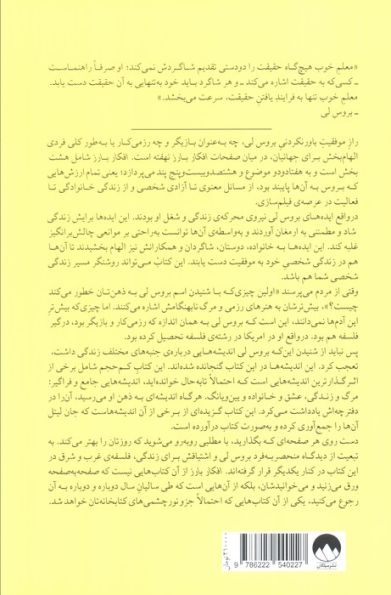 «معلم خوب هیچ‌گاه حقیقت را دودستی تقدیم شاگردش نمی‌کند؛ او صرفاً راهنماست
ـ کسی‌که به حقیقت اشاره می‌کند ـ و هر شاگرد باید خود به‌تنهایی به آن حقیقت دست یابد.
معلم خوب تنها به فرایند یافتنِ حقیقت، سرعت می‌بخشد.»
ـ بروس لی
رازِ موفقیتِ باورنکردنیِ بروس لی، چه به‌عنوان بازیگر و چه رزمی‌کار یا به‌طور کلی فردی
الهام‌بخش برای جهانیان، در میان صفحات افکار بارز نهفته است. افکار بارز شامل هشت
بخش است و به هفتادودو موضوع و هشتصدوبیست‌وپنج پند می‌پردازد؛ یعنی تمام ارزش‌هایی
که بروس به آن‌ها پایبند بود، از مسائل معنوی تا آزادی شخصی و از زندگی خانوادگی تا
فعالیت در عرصه‌ی فیلم‌سازی.
درواقع ایده‌های بروس لی نیروی محرکه‌ی زندگی و شغل او بودند. این ایده‌ها برایش زندگی
شاد و مطمئنی به ارمغان آوردند و به‌واسطه‌ی آن‌ها توانست به‌راحتی بر موانعی چالش‌برانگیز
غلبه کند. این ایده‌ها به خانواده، دوستان، شاگردان و همکارانش نیز الهام بخشیدند تا آن‌ها
هم در زندگی شخصیِ خود به موفقیت دست یابند. این کتاب می‌تواند روشنگر مسیر زندگی
شخصی شما هم باشد.
وقتی از مردم می‌پرسند «اولین چیزی‌که با شنیدن اسم بروس لی به ذهن‌تان خطور می‌کند
چیست؟»، بیش‌ترشان به هنرهای رزمی و مرگ نابهنگامش اشاره می‌کنند. اما چیزی‌که بیش‌ترِ
این آدم‌ها نمی‌دانند، این است‌که بروس لی به همان اندازه که رزمی‌کار و بازیگر بود، درگیر
فلسفه هم بود. درواقع او در امریکا در رشته‌ی فلسفه تحصیل کرده بود.
پس نباید از شنیدن این‌که بروس لی اندیشه‌هایی درباره‌ی جنبه‌های مختلف زندگی داشت،
تعجب کرد. این اندیشه‌ها در این کتاب گنجانده شده‌اند. این کتابِ کم‌حجم شامل برخی از
اثرگذارترین اندیشه‌هایی است‌که احتمالاً تابه‌حال خوانده‌اید، اندیشه‌هایی جامع و فراگیر:
مرگ و زندگی، عشق و خانواده و یین‌ویانگ. هرگاه اندیشه‌ای به ذهن او می‌رسید، آن‌را در
دفترچه‌اش یادداشت می‌کرد. این کتاب گزیده‌ای از برخی از آن اندیشه‌هاست که جان لیتل
آن‌ها را جمع‌آوری کرده و به‌صورت کتاب درآورده است.
دست روی هر صفحه‌ای که بگذارید، با مطلبی روبه‌رو می‌شوید که روزتان را بهتر می‌کند. به
تبعیت از دیدگاه منحصربه‌فرد بروس لی و اشتیاقش برای زندگی، فلسفه‌ی غرب و شرق در
این کتاب در کنار یکدیگر قرار گرفته‌اند. افکار بارز از آن کتاب‌هایی نیست که صفحه‌به‌صفحه
ورق می‌زنید و می‌خوانیدشان، بلکه از آن‌هایی است که طی سالیان سال دوباره و دوباره به آن
رجوع می‌کنید، یکی از آن کتاب‌هایی که احتمالاً جزو نورچشمی‌های کتابخانه‌تان خواهد شد.
نشر میلکان
9 786222 540227